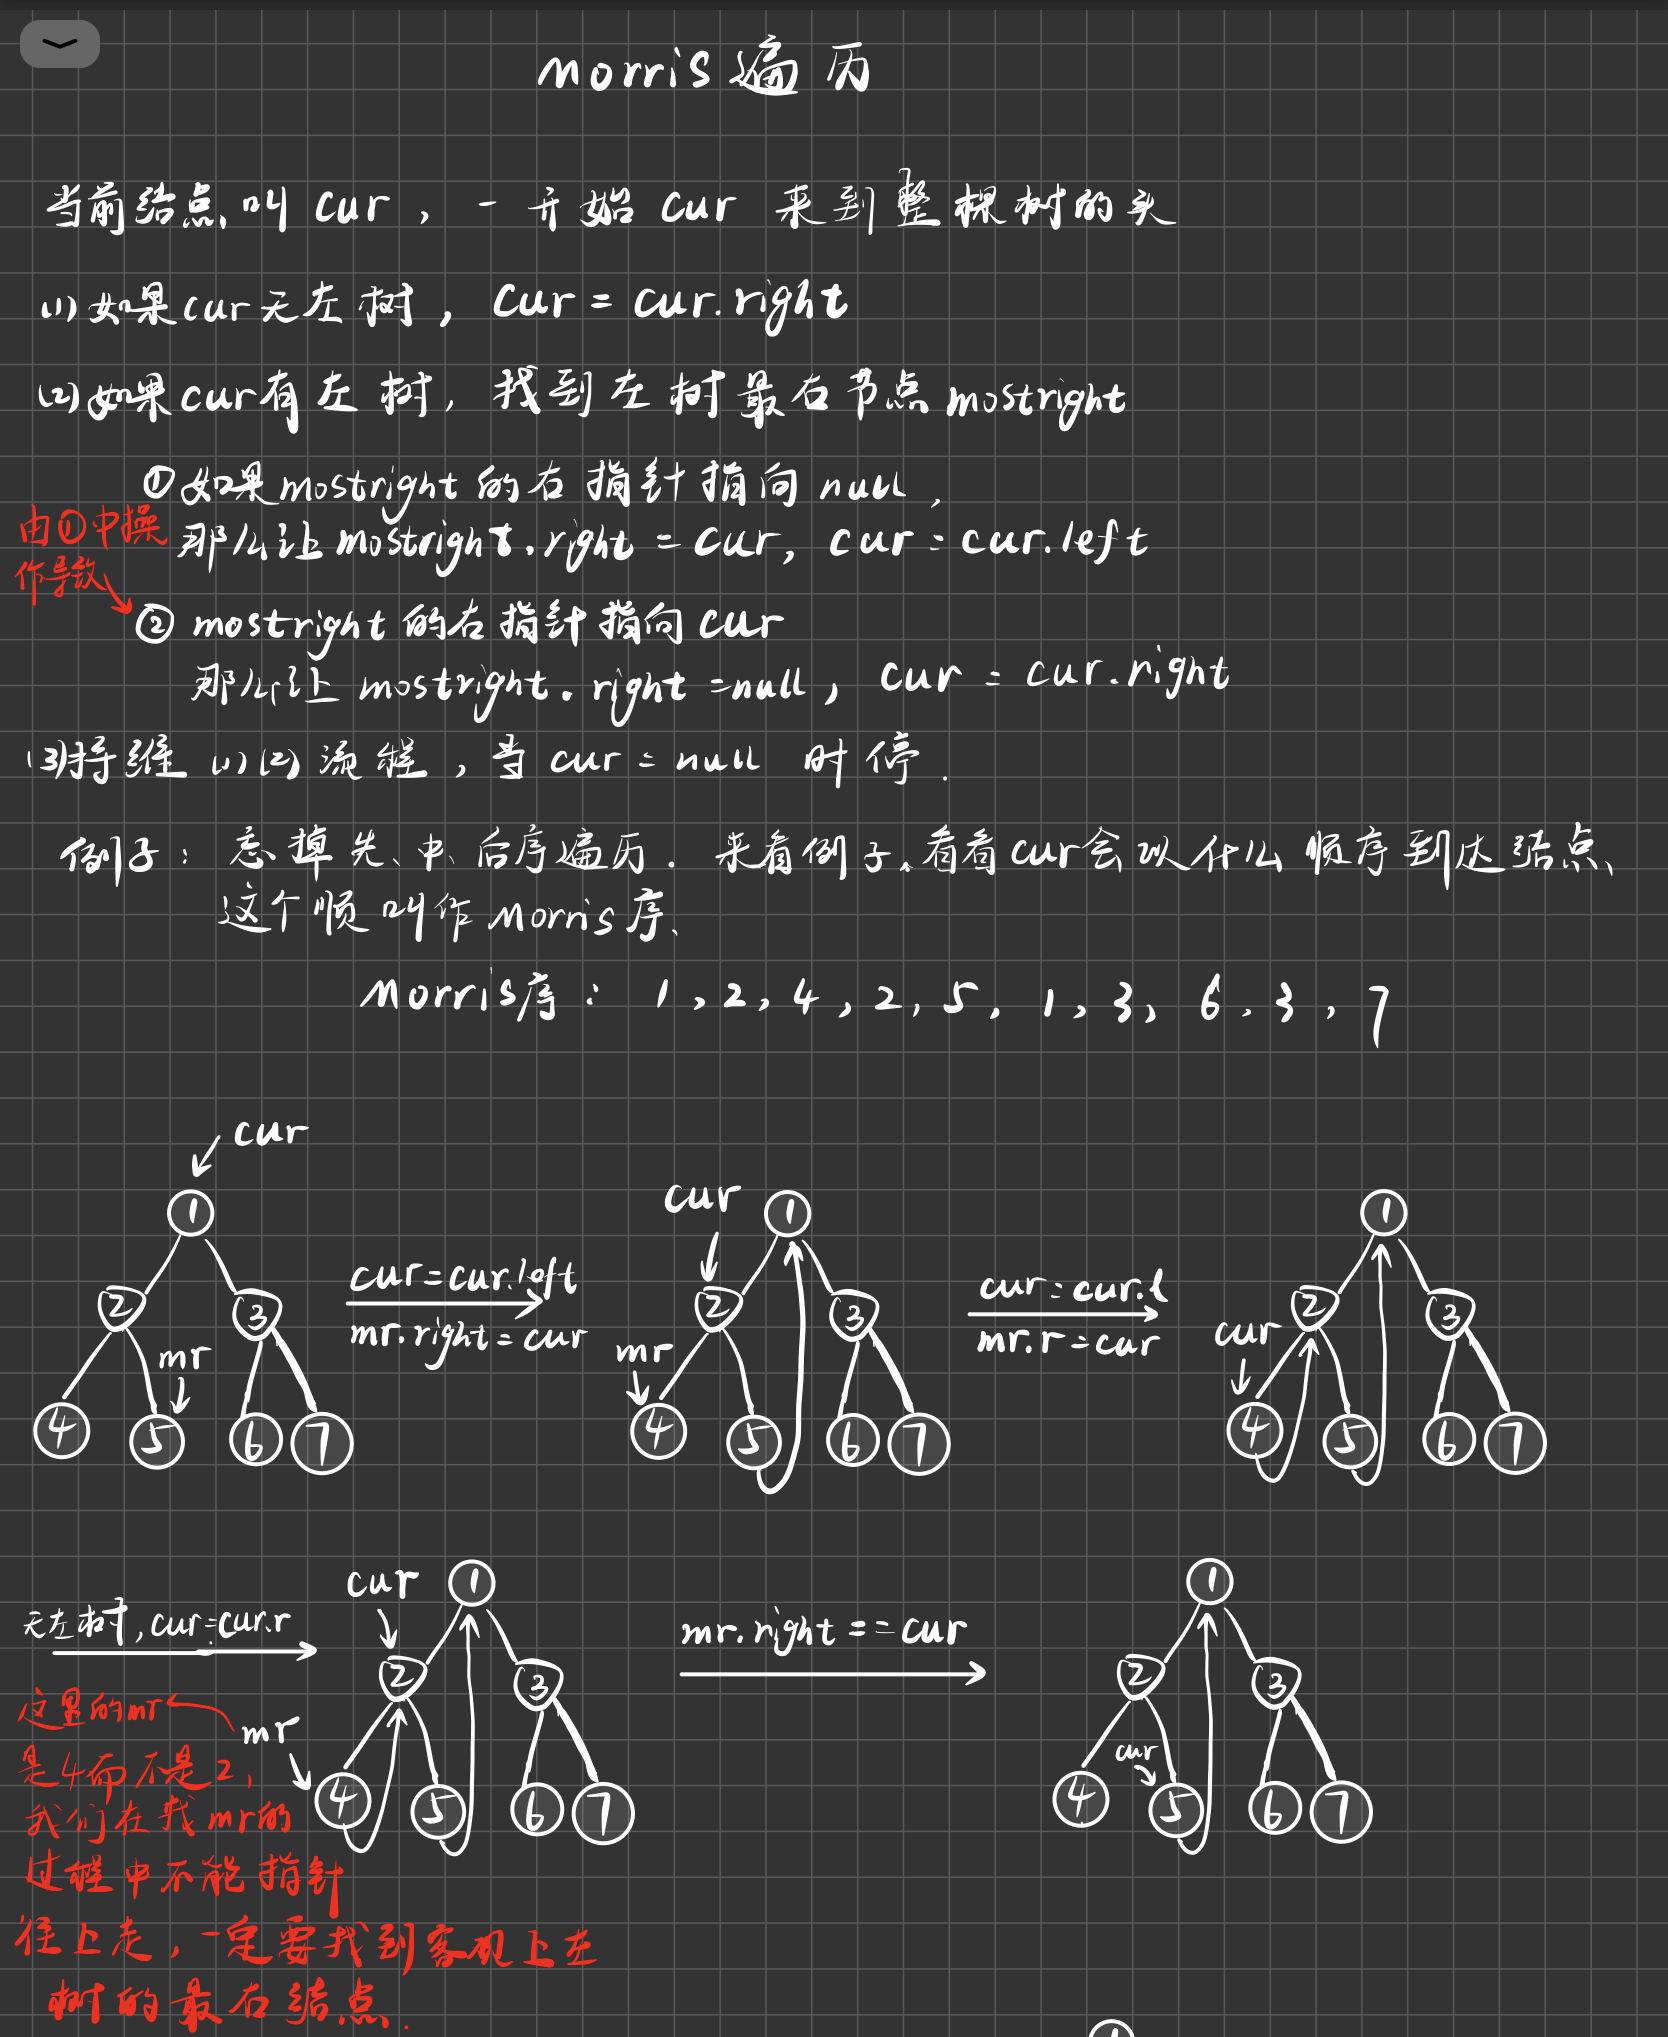 morris遍历
当前结点叫 cur , 一开始 cur 来到整棵树的头
(1)如果cur无左树, cur = cur.right
(2)如果cur有左树, 找到左树最右节点mostright
①如果mostright的右指针指向null,
那么让mostright.right = cur, cur = cur.left
由①中操
作导致
② mostright的右指针指向cur
那么让 mostright.right = null, cur = cur.right
(3)持续 (1)(2) 流程, 当 cur = null 时停.
例子: 忘掉先、中、后序遍历. 来看例子,看看cur会以什么顺序到达结点、
这个顺叫作morris序、
morris序: 1,2,4,2,5,1,3,6,3,7
cur
1
2
3
mr
4
5
6
7
cur=cur.left
mr.right=cur
cur
1
2
3
mr
4
5
6
7
cur=cur.l
mr.r=cur
1
2
3
cur
4
5
6
7
无左树,cur=cur.r
cur
1
2
3
mr
4
5
6
7
mr.right==cur
1
2
3
cur
4
5
6
7
这里的mr
是4而不是2,
我们在找mr的
过程中不能指针
往上走,一定要找到客观上左
树的最右结点.